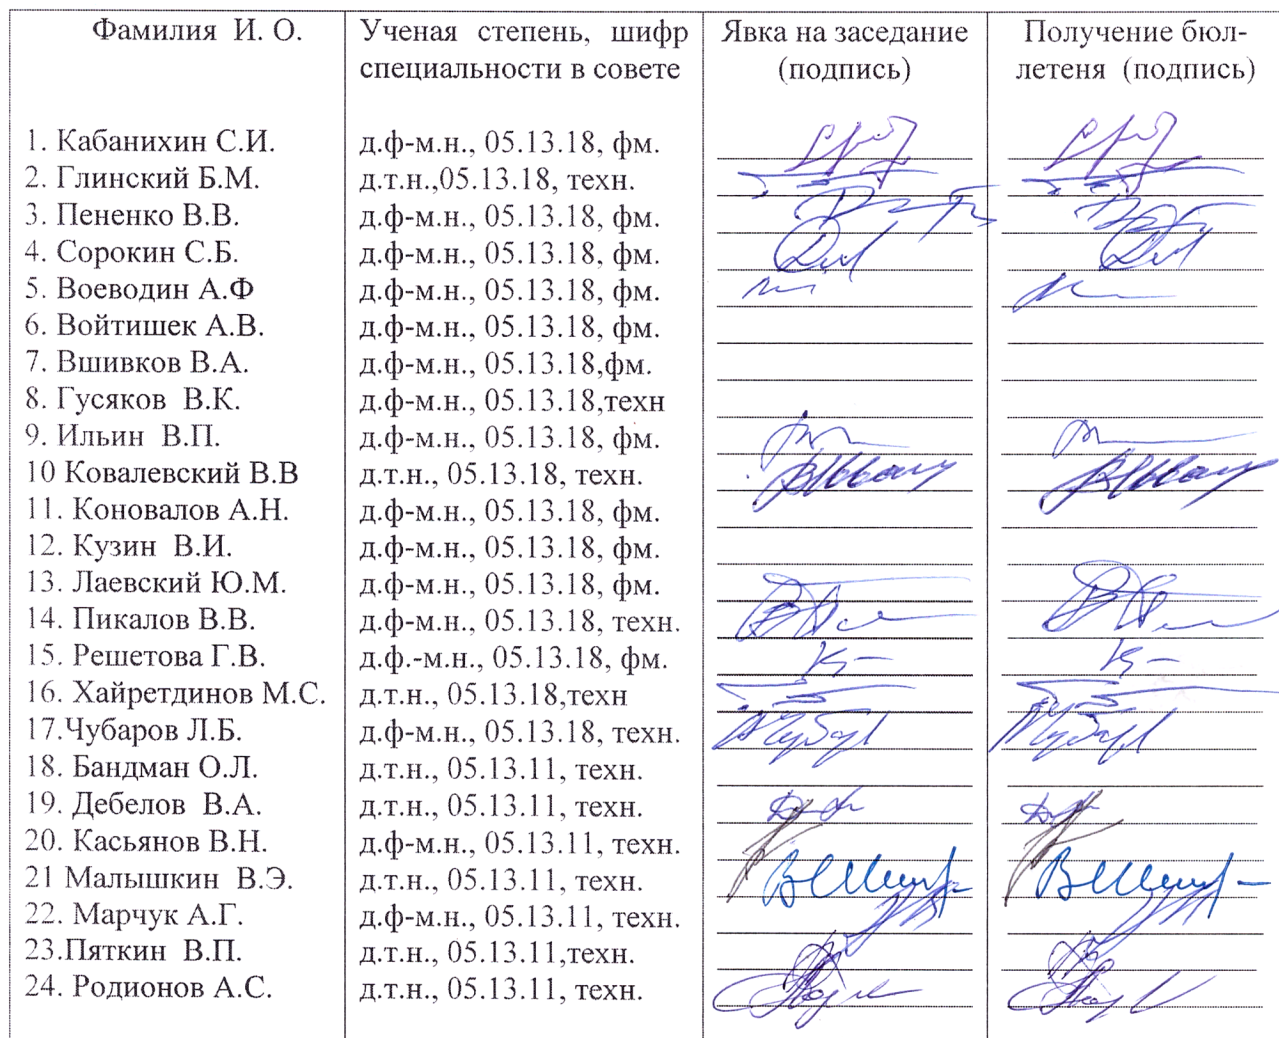 Фамилия И. О. Ученая степень, шифр Явка на заседание Получение бюл-
специальности в совете (подпись) летеня (подпись)
1. Кабанихин С.И. д.ф-м.н., 05.13.18, фм.
2. Глинский Б.М. д.т.н.,05.13.18, техн.
3. Пененко В.В. д.ф-м.н., 05.13.18, фм.
4. Сорокин С.Б. д.ф-м.н., 05.13.18, фм.
5. Воеводин А.Ф д.ф-м.н., 05.13.18, фм.
6. Войтишек А.В. д.ф-м.н., 05.13.18, фм.
7. Вшивков В.А. д.ф-м.н., 05.13.18,фм.
8. Гусяков В.К. д.ф-м.н., 05.13.18,техн
9. Ильин В.П. д.ф-м.н., 05.13.18, фм.
10 Ковалевский В.В д.т.н., 05.13.18, техн.
11. Коновалов А.Н. д.ф-м.н., 05.13.18, фм.
12. Кузин В.И. д.ф-м.н., 05.13.18, фм.
13. Лаевский Ю.М. д.ф-м.н., 05.13.18, фм.
14. Пикалов В.В. д.ф-м.н., 05.13.18, техн.
15. Решетова Г.В. д.ф.-м.н., 05.13.18, фм.
16. Хайретдинов М.С. д.т.н., 05.13.18,техн
17.Чубаров Л.Б. д.ф-м.н., 05.13.18, техн.
18. Бандман О.Л. д.т.н., 05.13.11, техн.
19. Дебелов В.А. д.т.н., 05.13.11, техн.
20. Касьянов В.Н. д.ф-м.н., 05.13.11, техн.
21 Малышкин В.Э. д.т.н., 05.13.11, техн.
22. Марчук А.Г. д.ф-м.н., 05.13.11, техн.
23.Пяткин В.П. д.т.н., 05.13.11,техн.
24. Родионов А.С. д.т.н., 05.13.11, техн.